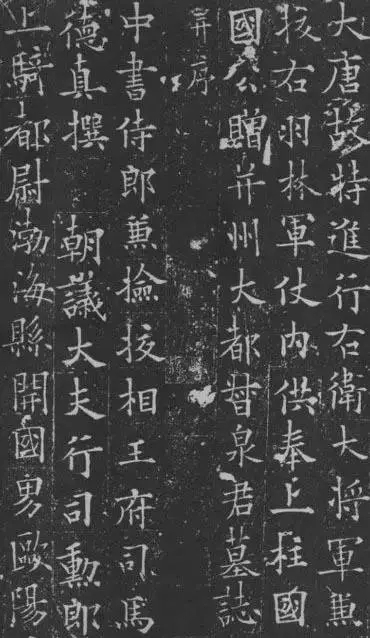 大唐故特進行右衛大將軍兼
挍右羽林軍仗內供奉上柱國
國公贈并州大都督泉君墓誌
并序
中書侍郎兼撿挍相王府司馬
德真撰 朝議大夫行司勳郎
上騎都尉渤海縣開國男歐陽